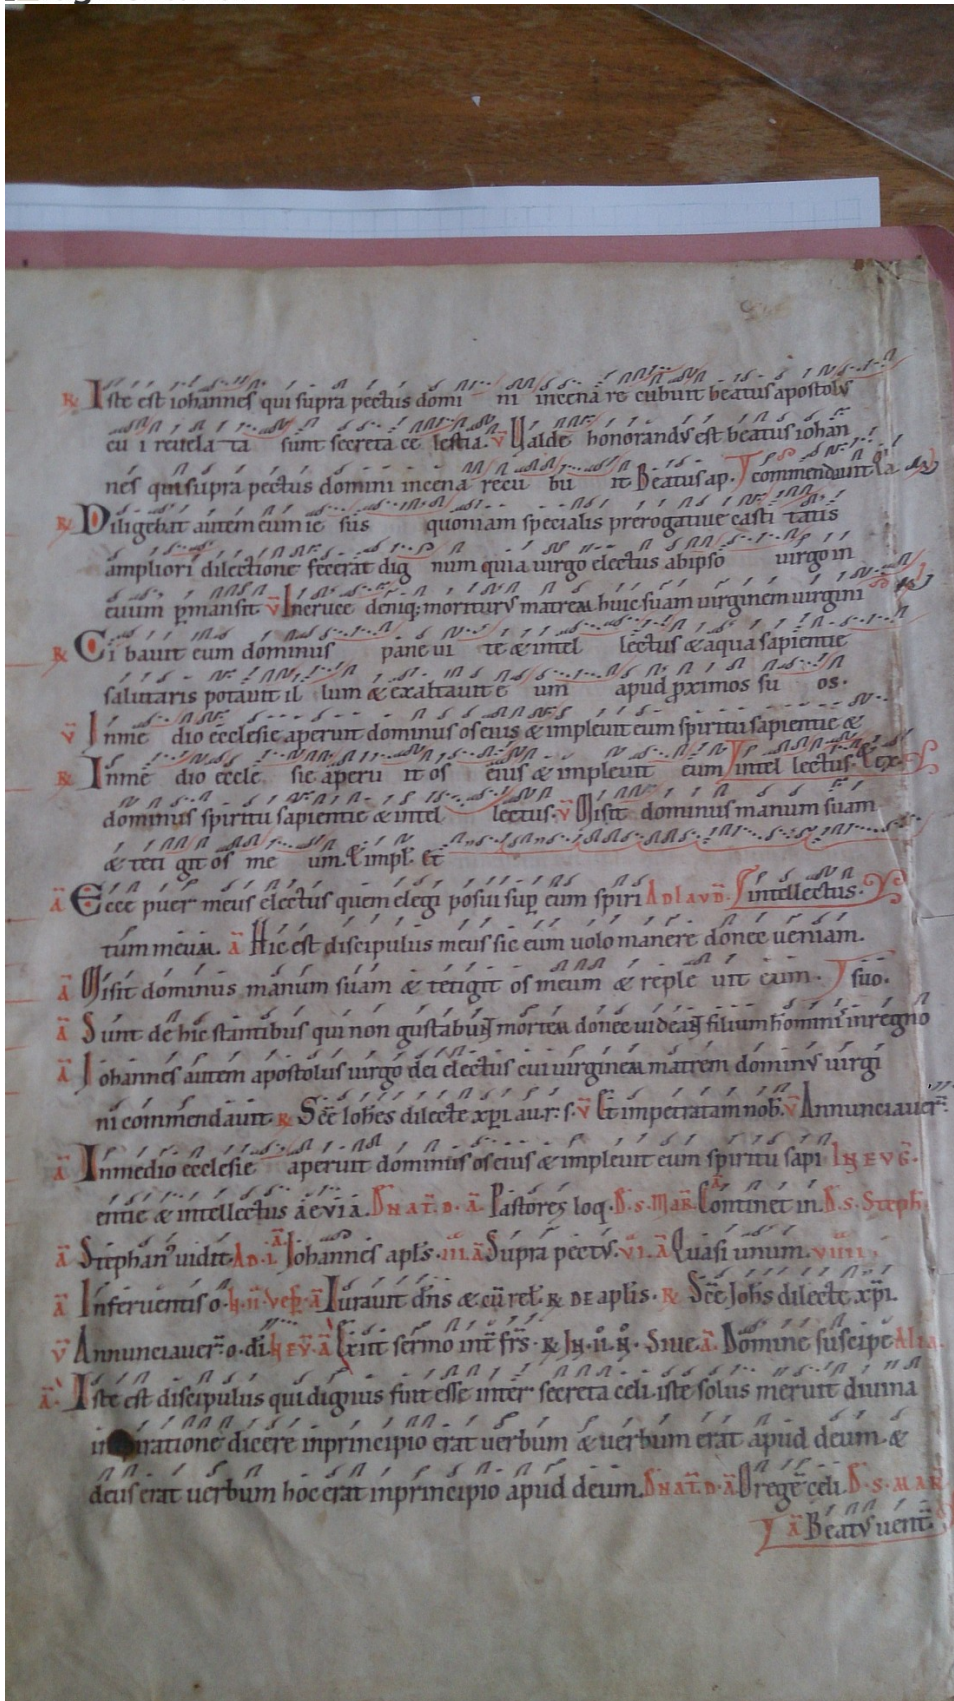 R Iste est iohannes qui supra pectus domi ni incena re cubuit beatus apostolus
cu i reuela ta sunt secreta ce lestia. V Ualde honorandus est beatus iohan
nes qui supra pectus domini incena recu bu it Beatus ap. commendauit
R Diligebat autem eum ie sus quoniam specialis prerogatiue casti tatis
ampliori dilectione fecerat dig num quia uirgo electus abipso uirgo in
euum pmansit V Incruce deniq; moriturus matrem huic suam uirginem uirgini
R Ci bauit eum dominus pane ui te & intel lectus & aqua sapientie
salutaris potauit il lum & exaltauit e um apud proximos su os.
V Inme dio ecclesie aperuit dominus os eius & impleuit eum spiritu sapientie &
R Inme dio eccle sie aperu it os eius & impleuit eum intel lectus.
dominus spiritu sapientie & intel lectus. V Misit dominus manum suam
& teti git os me um. & impl. Et
A Ecce puer meus electus quem elegi posui sup eum spiri AD LAVD. intellectus.
tum meum. A Hic est discipulus meus sic eum uolo manere donec ueniam.
A Misit dominus manum suam & tetigit os meum & reple uit eum. suo.
A Sunt de hic stantibus qui non gustabunt mortem donec uideant filium hominis inregno
A Iohannes autem apostolus uirgo dei electus cui uirginem matrem dominus uirgi
ni commendauit R Sce Iohes dilecte xpi au.r: s. V Et impetratam nob. V Annunciauer
A Inmedio ecclesie aperuit dominus os eius & impleuit eum spiritu sapi IN EVG.
entie & intellectus aeuia. D NAT. D. A. Pastores loq. D. S. MAR. Continet in. D. S. Steph
A Stephanus uidit. AD. I. A Iohannes apls. III. A Supra pectus. VI. A Quasi unum. VIIII.
A Inferuentis o. IN II Vesp. A Iurauit dns & cu rel. R DE aplis. R Sce Iohs dilecte xpi.
V Annunciauer o. di. IN EV. A Exiit sermo int frs. R IN. II. N. Siue. A. Domine suscipe Alia
A. Iste est discipulus qui dignus fuit esse inter secreta celi. iste solus meruit diuina
inspiratione dicere inprincipio erat uerbum & uerbum erat apud deum &
deus erat uerbum hoc erat inprincipio apud deum. D NAT. D. A O rege celi. D. S. MAR
A Beatus uent